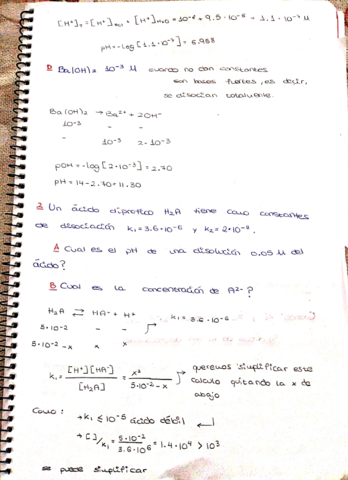 [H⁺]T = [H⁺]HCl + [H⁺]H₂O = 10⁻⁶ + 9.5·10⁻⁸ = 1.1·10⁻⁶ M
pH = -log[1.1·10⁻⁶] = 5.958
D Ba(OH)₂ 10⁻³ M cuando no dan constantes
son bases fuertes, es decir,
se disocian totalmente.
Ba(OH)₂ → Ba²⁺ + 2OH⁻
10⁻³ - -
- 10⁻³ 2·10⁻³
pOH = -log[2·10⁻³] = 2.70
pH = 14 - 2.70 = 11.30
2 Un ácido diprótico H₂A tiene como constantes
de disociación k₁ = 3.6·10⁻⁶ y k₂ = 2·10⁻⁸.
A Cual es el pH de una disolución 0.05 M del
ácido?
B Cual es la concentración de A²⁻?
H₂A ⇄ HA⁻ + H⁺ k₁ = 3.6·10⁻⁶
5·10⁻² - -
5·10⁻² - x x x
k₁ = [H⁺][HA⁻] / [H₂A] = x² / 5·10⁻² - x → queremos simplificar este
calculo quitando la x de
abajo
Como: → k₁ ≤ 10⁻⁵ ácido débil ↵
→ [ ]/k₁ = 5·10⁻² / 3.6·10⁶ = 1.4·10⁴ > 10³
se puede simplificar